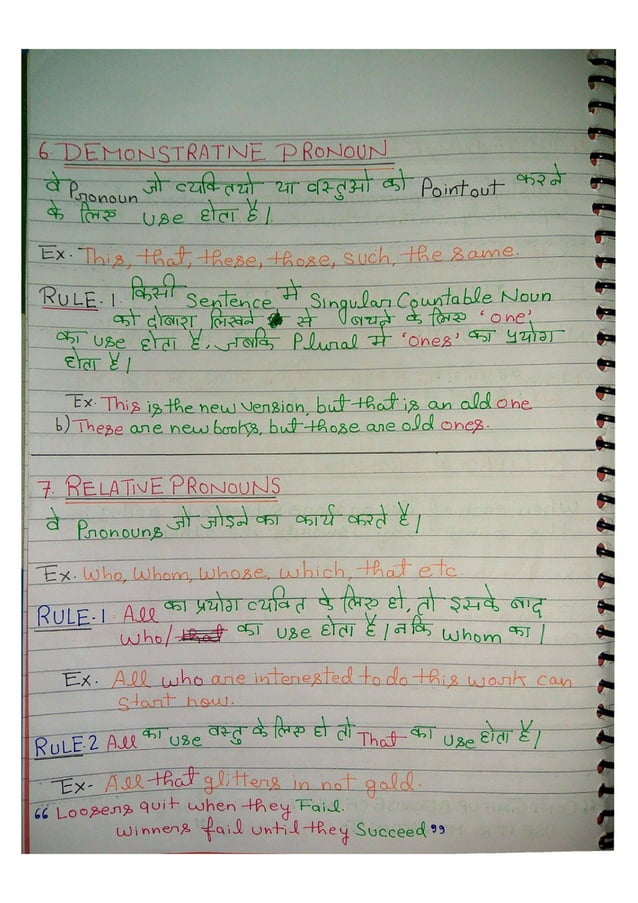 6. DEMONSTRATIVE PRONOUN
वे Pronoun जो व्यक्तियो या वस्तुओ को Point out करने
के लिए use होता है।
Ex. This, that, these, those, such, the same.
RULE.1. किसी Sentence मे Singular Countable Noun
को दोबारा लिखने से बचने के लिए 'one'
का use होता है, जबकि Plural मे 'ones' का प्रयोग
होता है।
Ex. This is the new version, but that is an old one
b) These are new books, but those are old ones.
7. RELATIVE PRONOUNS
वे Pronouns जो जोड़ने का कार्य करते है।
Ex. Who, Whom, Whose, which, that etc.
RULE.1 All का प्रयोग व्यक्ति के लिए हो, तो इसके बाद
who/ that का use होता है। न कि whom का।
Ex. All who are interested to do this work can
start now.
RULE.2 All का use वस्तु के लिए हो तो That का use होता है।
Ex- All that glitters in not gold.
“ Loosers quit when they Fail.
Winners fail until they Succeed ”